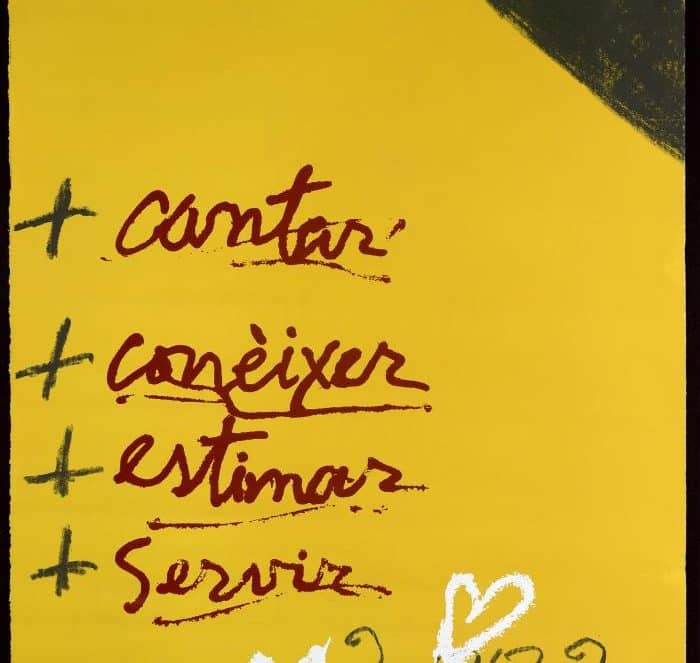 + cantar
+ conèixer
+ estimar
+ Servir